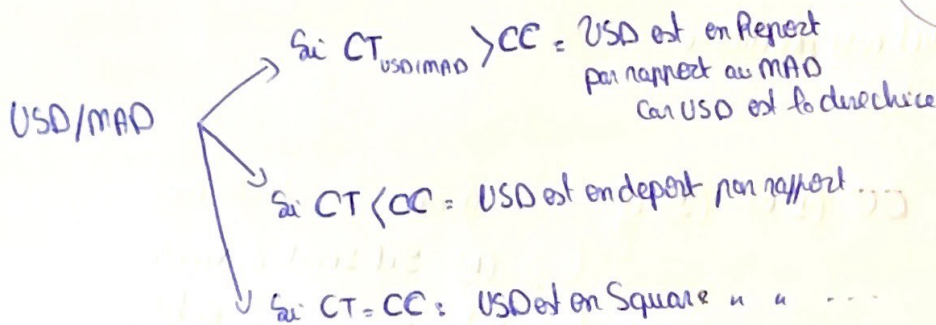 Si CT USD/MAD > CC = USD est en Report
par rapport au MAD
Car USD est la directrice
USD/MAD
Si CT < CC = USD est en deport par rapport ...
Si CT = CC : USD est en Square " " ...